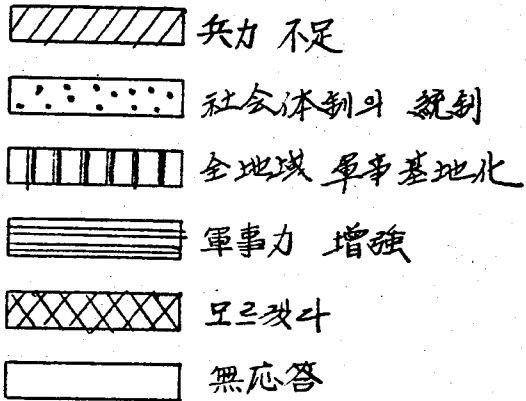 兵力 不足
社会体制의 統制
全地域 軍事基地化
軍事力 増強
모르겠다
無応答